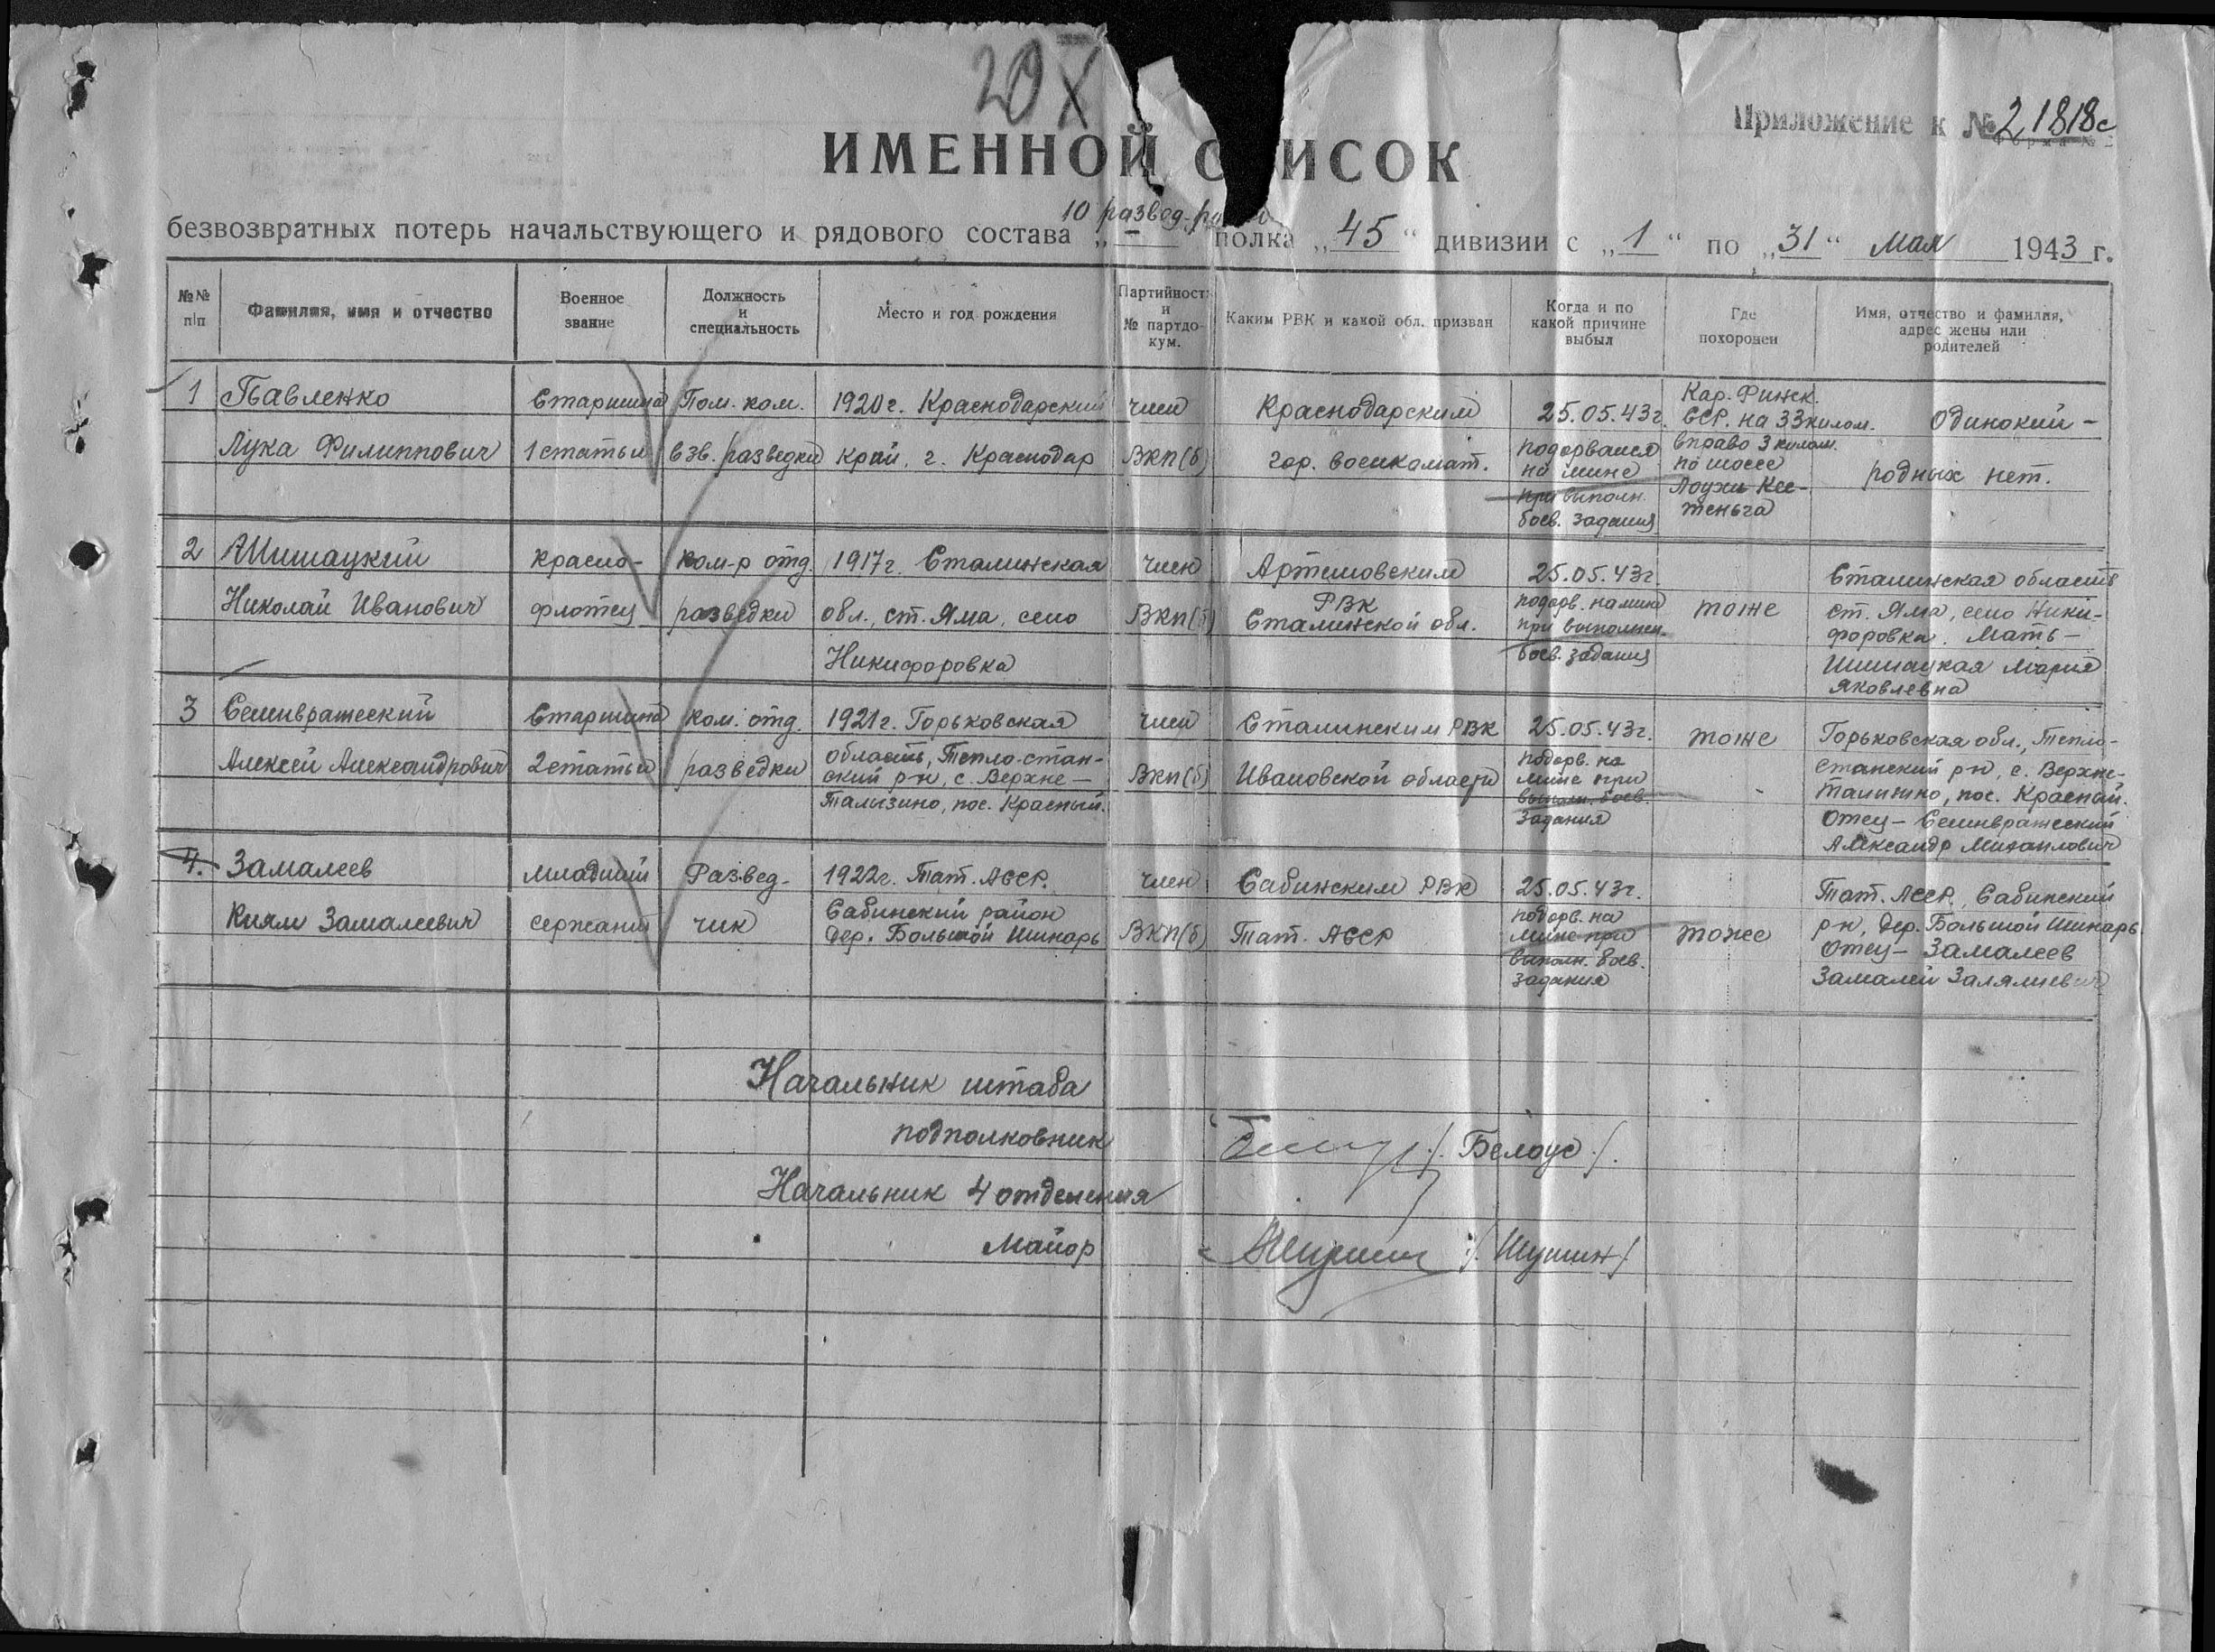 20 X
Приложение к № 21818с
ИМЕННОЙ С ИСОК
10 развед.
безвозвратных потерь начальствующего и рядового состава „ – полка „45“ дивизии с „1“ по „31“ мая 1943 г.
№№ п/п
Фамилия, имя и отчество
Военное звание
Должность и специальность
Место и год рождения
Партийность и № партдокум.
Каким РВК и какой обл. призван
Когда и по какой причине выбыл
Где похоронен
Имя, отчество и фамилия, адрес жены или родителей
1
Павленко
Лука Филиппович
Старшина
1 статьи
Пом. ком.
взв. разведки
1920 г. Краснодарский
край, г. Краснодар
член
ВКП(б)
Краснодарским
гор. военкомат.
25.05.43 г.
подорвался
на мине
при выполн.
боев. задания
Кар. Финск.
ССР. на 33 килом.
вправо 3 килом.
по шоссе
Лоухи Кес-
теньга
Одинокий –
родных нет.
2
Шишацкий
Николай Иванович
красно-
флотец
Ком-р отд.
разведки
1917 г. Сталинская
обл., ст. Яма, село
Никифоровка
член
ВКП(б)
Артемовским
РВК
Сталинской обл.
25.05.43 г.
подорв. на мине
при выполнен.
боев. задания
тоже
Сталинская область
ст. Яма, село Ники-
форовка. Мать –
Шишацкая Мария
Яковлевна
3
Семивражский
Алексей Александрович
Старшина
2 статьи
ком. отд.
разведки
1921 г. Горьковская
область, Тепло-стан-
ский р-н, с. Верхне –
Талызино, пос. Красный.
член
ВКП(б)
Сталинским РВК
Ивановской области
25.05.43 г.
подорв. на
мине при
выполн. боев.
задания
тоже
Горьковская обл., Тепло-
станский р-н, с. Верхне-
Талызино, пос. Красный.
Отец – Семивражский
Александр Михайлович
4.
Замалеев
Киям Замалеевич
младший
сержант
Развед-
чик
1922 г. Тат. АССР.
Сабинский район
дер. Большой Шинарь
член
ВКП(б)
Сабинским РВК
Тат. АССР
25.05.43 г.
подорв. на
мине при
выполн. боев.
задания
тоже
Тат. АССР, Сабинский
р-н, дер. Большой Шинарь.
Отец – Замалеев
Замалей Залялиевич
Начальник штаба
подполковник
/Белоус/.
Начальник 4 отделения
Майор
/Шушин/